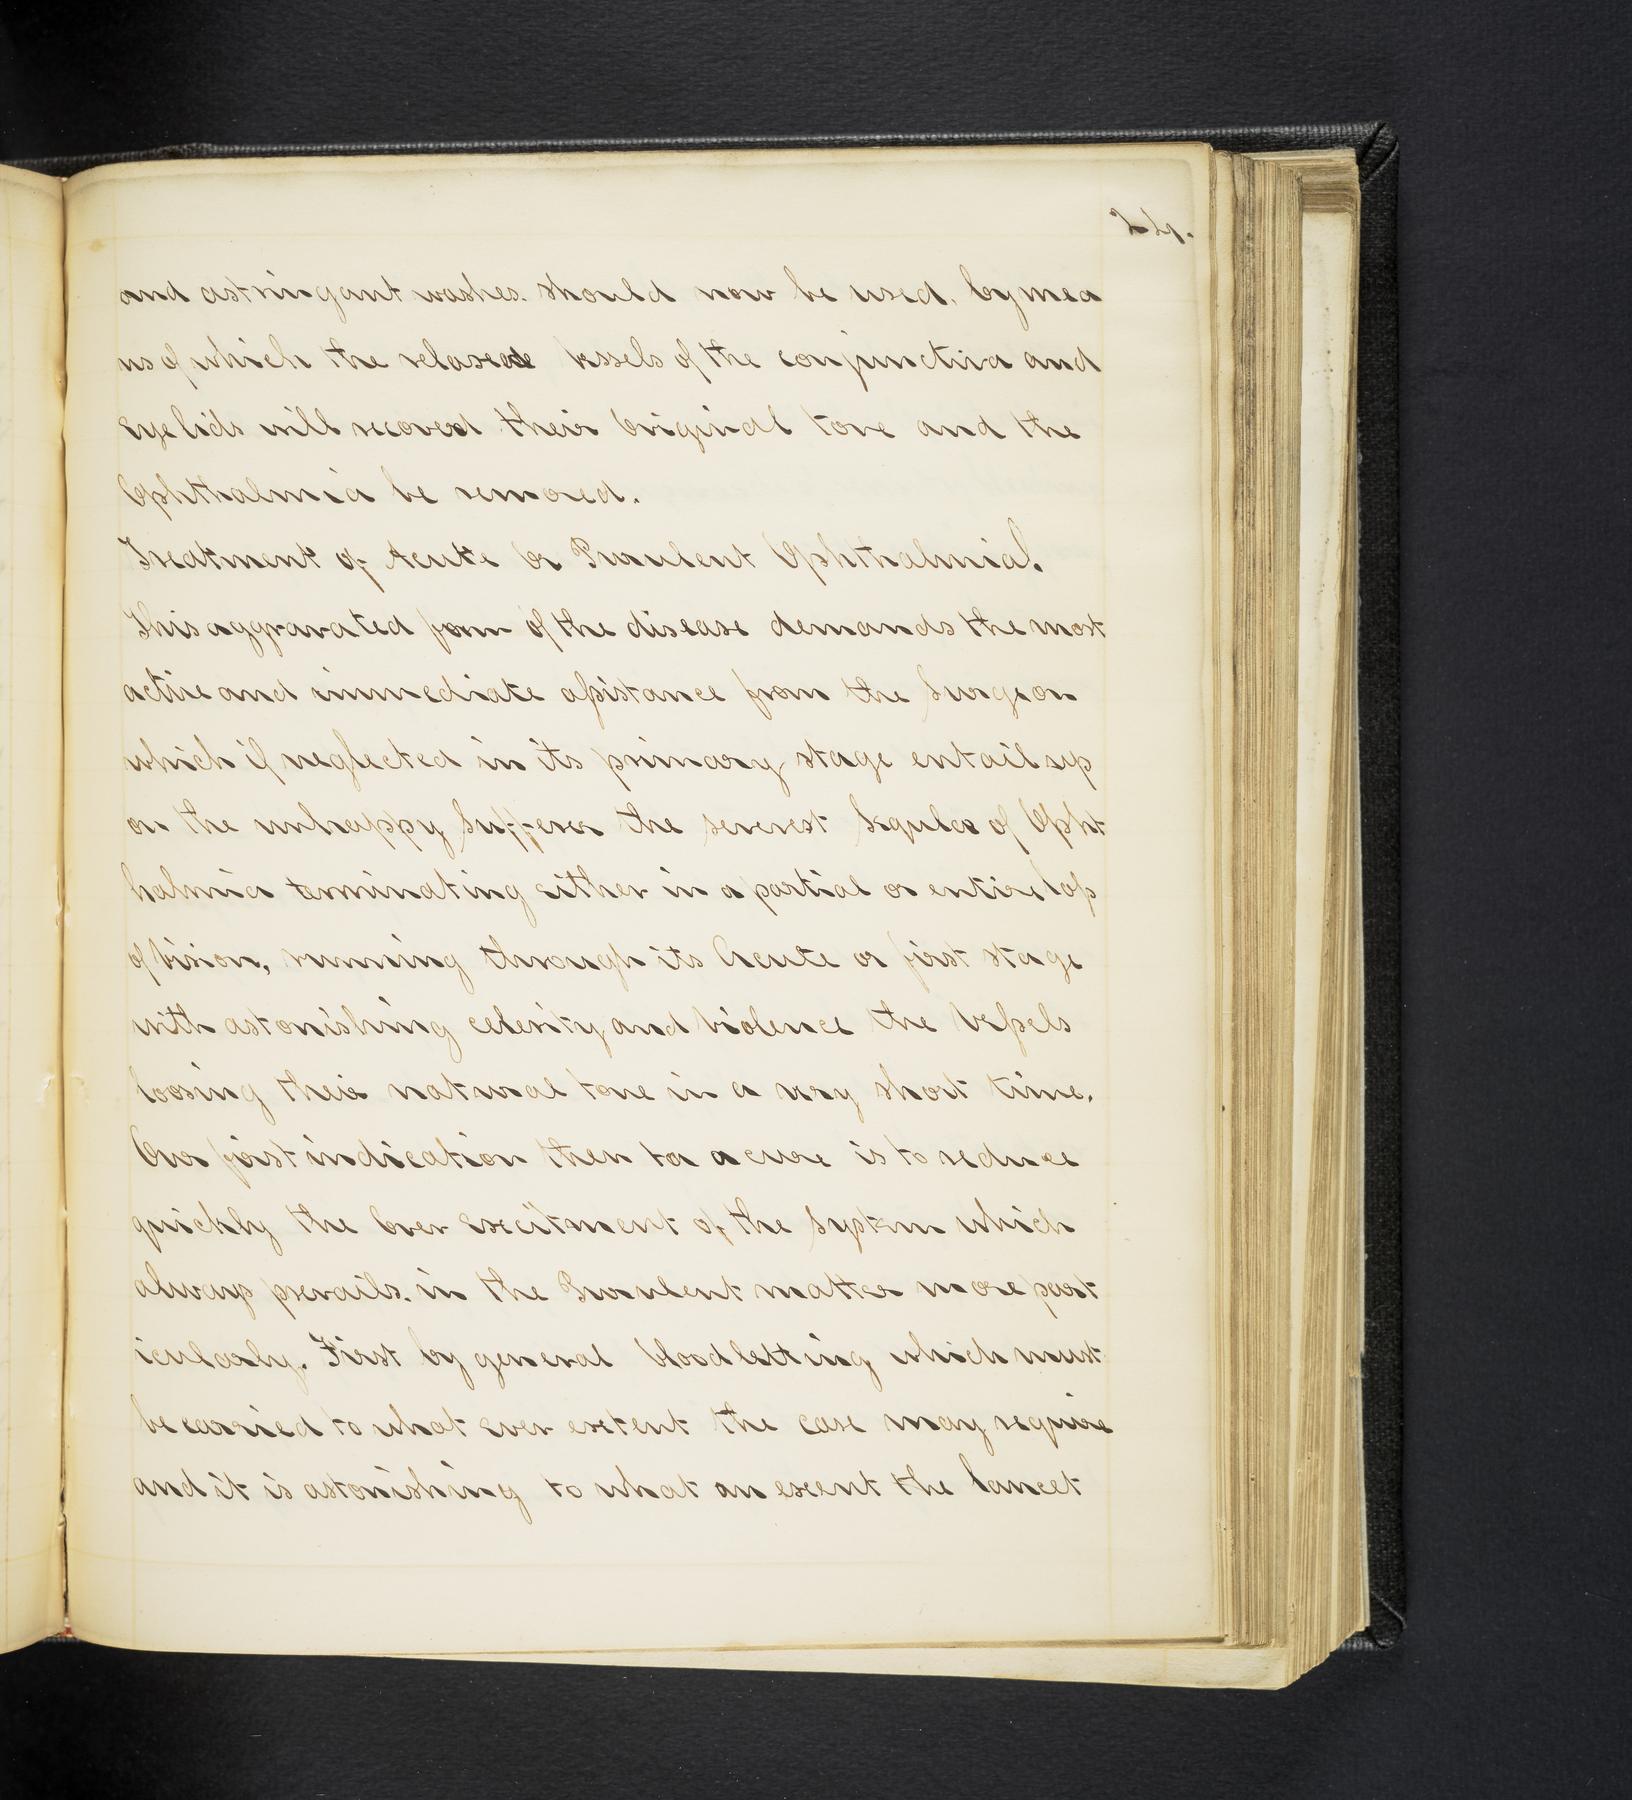 24.
and astringant washes. should now be used. by mea
ns of which the relaxed vessels of the conjunctiva and
Eyelids will recover their Original tone and the
Ophthalmia be removed.
Treatment of Acute Or Purulent Ophthalmia.
This aggravated form of the disease demands the most
active and immediate assistance from the Surgeon
which if neglected in its primary stage entails up
on the unhappy Sufferer the severest Sequlae of Opht
halmia terminating either in a partial or entire loss
of Vision, running through its Acute or first stage
with astonishing celerity and Violence the Vessels
loosing their natural tone in a very short time.
Our first indication then for a cure is to reduce
quickly the Over Excitment of the System which
always prevails. in the Purulent matter more part
icularly. First by general bloodletting which must
be carried to what ever extent the case may require
and it is astonishing to what an excent the lancet